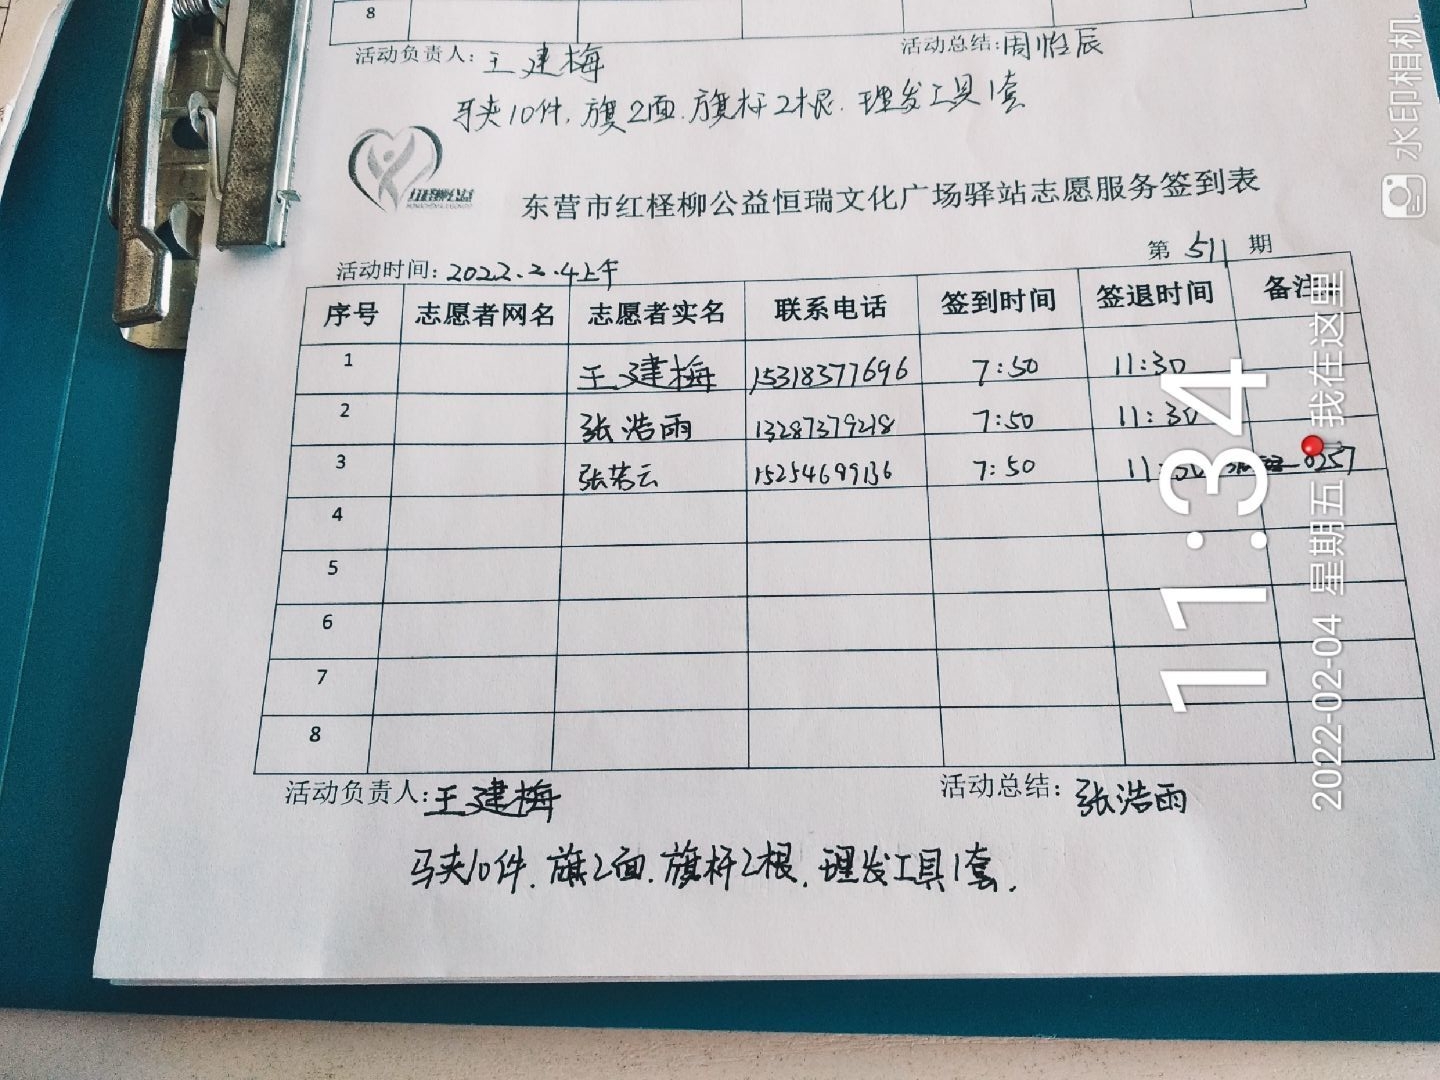 8
活动负责人：王建梅 活动总结：周怡辰
马夹10件．旗2面．旗杆2根．理发工具1套
东营市红柽柳公益恒瑞文化广场驿站志愿服务签到表
第 511 期
活动时间：2022.2.4上午
序号 志愿者网名 志愿者实名 联系电话 签到时间 签退时间 备注
1 王建梅 15318377696 7:50 11:30
2 张浩雨 13287379218 7:50 11:30
3 张若云 15254699136 7:50 11:30 0257
4
5
6
7
8
活动负责人：王建梅 活动总结：张浩雨
马夹10件．旗2面．旗杆2根．理发工具1套．
11:34
2022-02-04 星期五 我在这里
水印相机